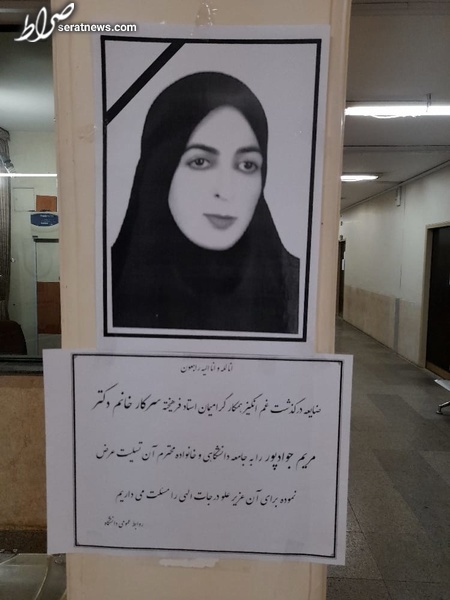 صراط
seratnews.com
انا لله و انا الیه راجعون
ضایعه درگذشت غم انگیز همکار گرامیمان استاد فرهیخته سرکار خانم دکتر
مریم جوادپور را به جامعه دانشگاهی و خانواده محترم آن تسلیت عرض
نموده برای آن عزیز علو درجات الهی را مسئلت می داریم
روابط عمومی دانشگاه